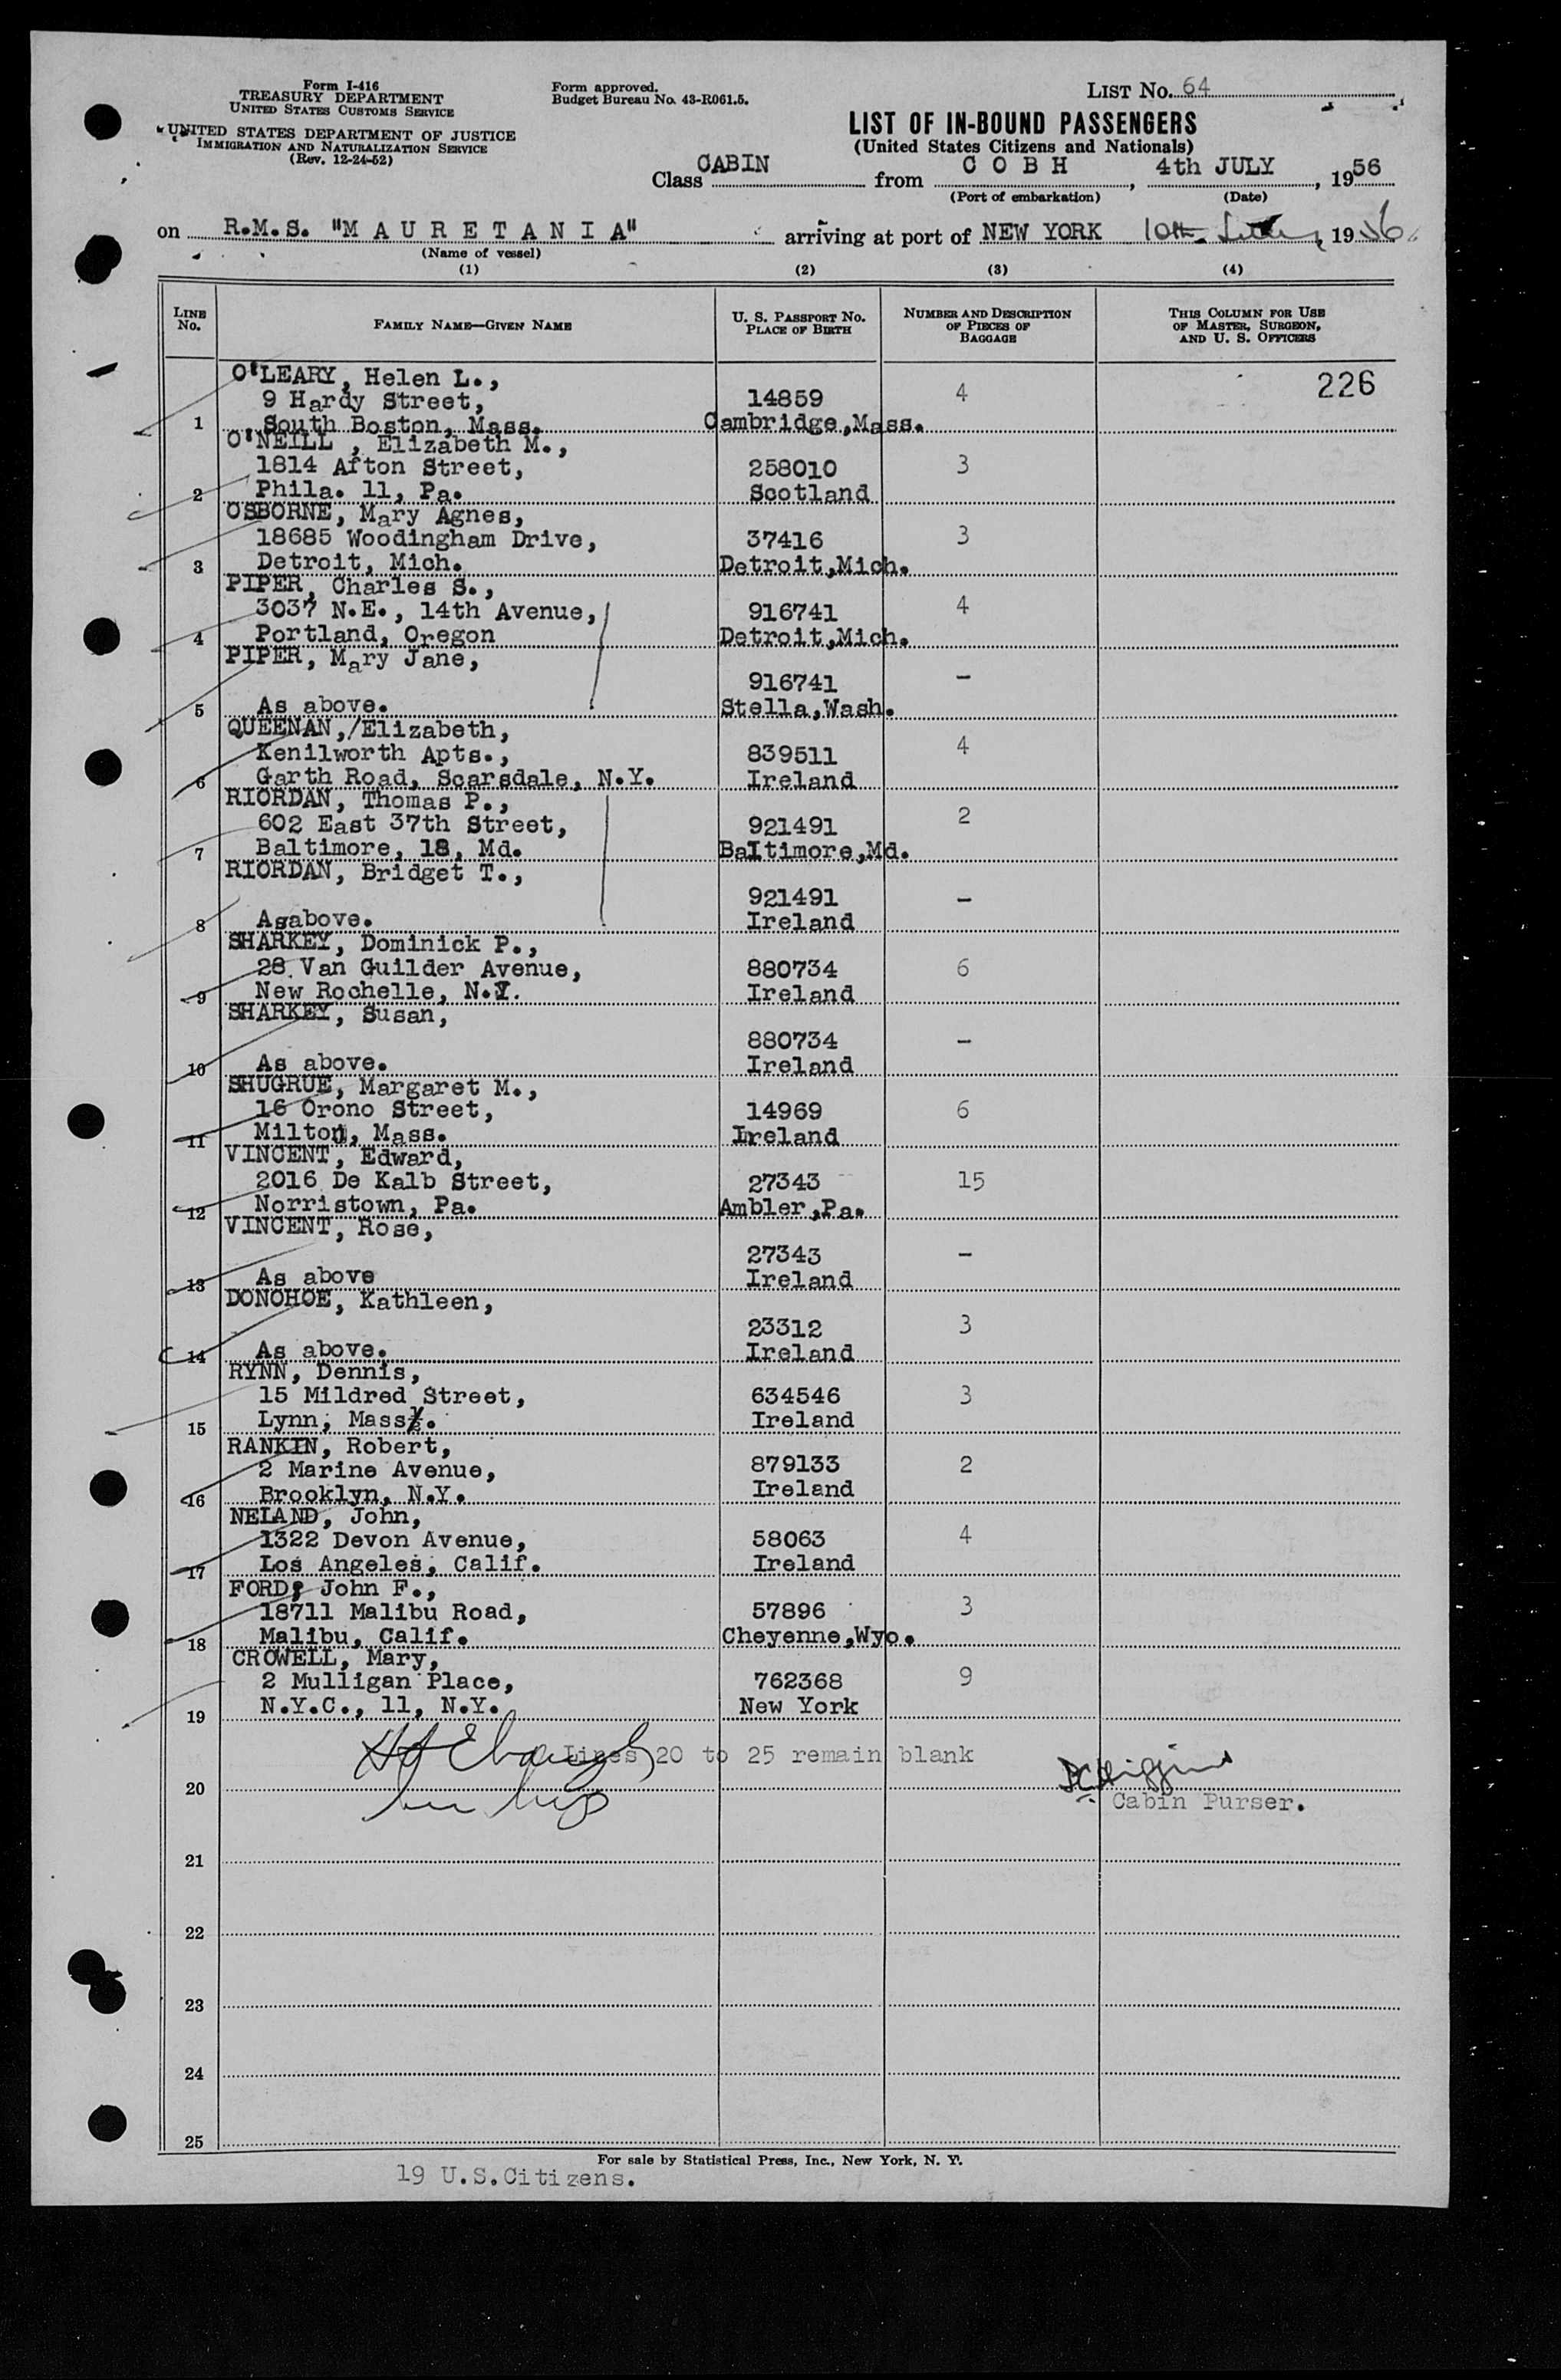 Form I-416
TREASURY DEPARTMENT
UNITED STATES CUSTOMS SERVICE
UNITED STATES DEPARTMENT OF JUSTICE
IMMIGRATION AND NATURALIZATION SERVICE
(Rev. 12-24-52)
Form approved.
Budget Bureau No. 43-R061.5.
LIST No. 64
LIST OF IN-BOUND PASSENGERS
(United States Citizens and Nationals)
Class CABIN from C O B H, 4th JULY, 1956
(Port of embarkation) (Date)
on R.M.S. "M A U R E T A N I A" arriving at port of NEW YORK 10th 1956
(Name of vessel)
(1) (2) (3) (4)
LINE No. FAMILY NAME—GIVEN NAME U. S. PASSPORT No. PLACE OF BIRTH NUMBER AND DESCRIPTION OF PIECES OF BAGGAGE THIS COLUMN FOR USE OF MASTER, SURGEON, AND U. S. OFFICERS
226
O'LEARY, Helen L.,
9 Hardy Street, 14859 4
1 South Boston, Mass. Cambridge,Mass.
O'NEILL , Elizabeth M.,
1814 Afton Street, 258010 3
2 Phila. 11, Pa. Scotland
OSBORNE, Mary Agnes,
18685 Woodingham Drive, 37416 3
3 Detroit, Mich. Detroit,Mich.
PIPER, Charles S.,
3037 N.E., 14th Avenue, 916741 4
4 Portland, Oregon Detroit,Mich.
PIPER, Mary Jane,
916741 -
5 As above. Stella,Wash.
QUEENAN,/Elizabeth,
Kenilworth Apts., 839511 4
6 Garth Road, Scarsdale, N.Y. Ireland
RIORDAN, Thomas P.,
602 East 37th Street, 921491 2
7 Baltimore, 18, Md. Baltimore,Md.
RIORDAN, Bridget T.,
921491 -
8 Asabove. Ireland
SHARKEY, Dominick P.,
28 Van Guilder Avenue, 880734 6
9 New Rochelle, N.Y. Ireland
SHARKEY, Susan,
880734 -
10 As above. Ireland
SHUGRUE, Margaret M.,
16 Orono Street, 14969 6
11 Milton, Mass. Ireland
VINCENT, Edward,
2016 De Kalb Street, 27343 15
12 Norristown, Pa. Ambler,Pa.
VINCENT, Rose,
27343 -
13 As above Ireland
DONOHOE, Kathleen,
23312 3
14 As above. Ireland
RYNN, Dennis,
15 Mildred Street, 634546 3
15 Lynn, Mass. Ireland
RANKIN, Robert,
2 Marine Avenue, 879133 2
16 Brooklyn, N.Y. Ireland
NELAND, John,
1322 Devon Avenue, 58063 4
17 Los Angeles, Calif. Ireland
FORD, John F.,
18711 Malibu Road, 57896 3
18 Malibu, Calif. Cheyenne,Wyo.
CROWELL, Mary,
2 Mulligan Place, 762368 9
19 N.Y.C., 11, N.Y. New York
Lines 20 to 25 remain blank
Higgins
20 Cabin Purser.
21
22
23
24
25
For sale by Statistical Press, Inc., New York, N. Y.
19 U.S.Citizens.